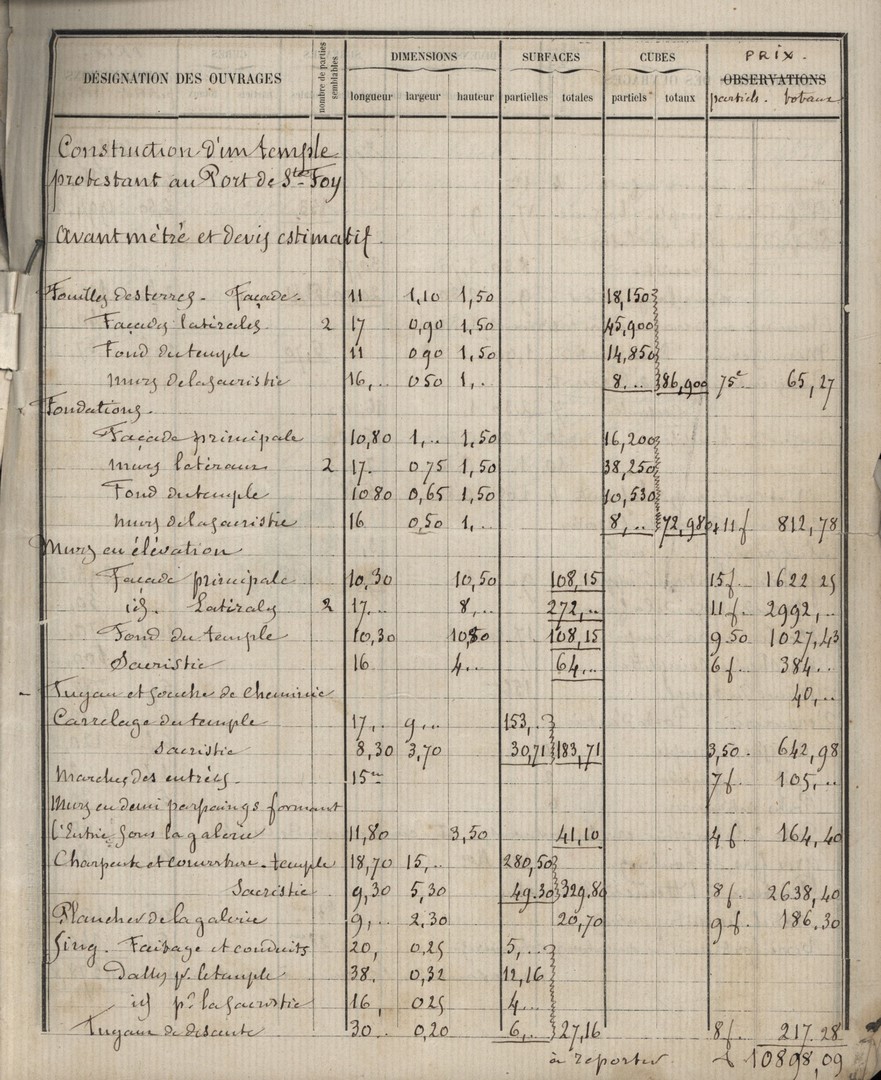 PRIX.
DÉSIGNATION DES OUVRAGES nombre de parties semblables DIMENSIONS SURFACES CUBES OBSERVATIONS
longueur largeur hauteur partielles totales partiels totaux partiels. totaux
Construction d'un temple
protestant au Port de Ste Foy
Avant mètré et devis estimatif
Fouilles des terres. Façade. 11 1,10 1,50 18,150
Façades latérales 2 17 0,90 1,50 45,900
Fond du temple 11 0 90 1,50 14,850
Murs de la sacristie 16,.. 0 50 1,.. 8,.. 86,900 75c 65,17
Fondations.
Façade principale 10,80 1,.. 1,50 16,200
Murs latéraux 2 17. 0,75 1,50 38,250
Fond du temple 10 80 0,65 1,50 10,530
Murs de la sacristie 16 0,50 1,.. 8,.. 72,980 11f 812,78
Murs en élévation
Façade principale 10,30 10,50 108,15 15f. 1622 25
id. Latérales 2 17.. 8,.. 272,.. 11f. 2992,..
Fond du temple 10,30 10,50 108,15 9.50 1027,43
Sacristie 16 4.. 64,.. 6f 384..
Tuyau et souche de cheminée 40,..
Carrelage du temple 17,. 9,.. 153,.
sacristie 8,30 3,70 30,71 183,71 3,50. 642,98
Marches des entrées. 15m 7f. 105,..
Murs en demi parpaings formant
l'Entrée sous la galerie 11,80 3,50 41,10 4f 164,40
Charpente et couverture. temple 18,70 15,.. 280,50
Sacristie 9,30 5,30 49.30 329,80 8f. 2638,40
Planches de la galerie 9,.. 2,30 20,70 9f 186.30
Zing. Faitage et conduits 20, 0,25 5,..
Dalles p. le temple 38. 0,32 12,16
id pr. la sacristie 16, 0 25 4...
Tuyaux de descente 30.. 0,20 6,.. 27,16 8f. 217.28
à reporter 10898,09